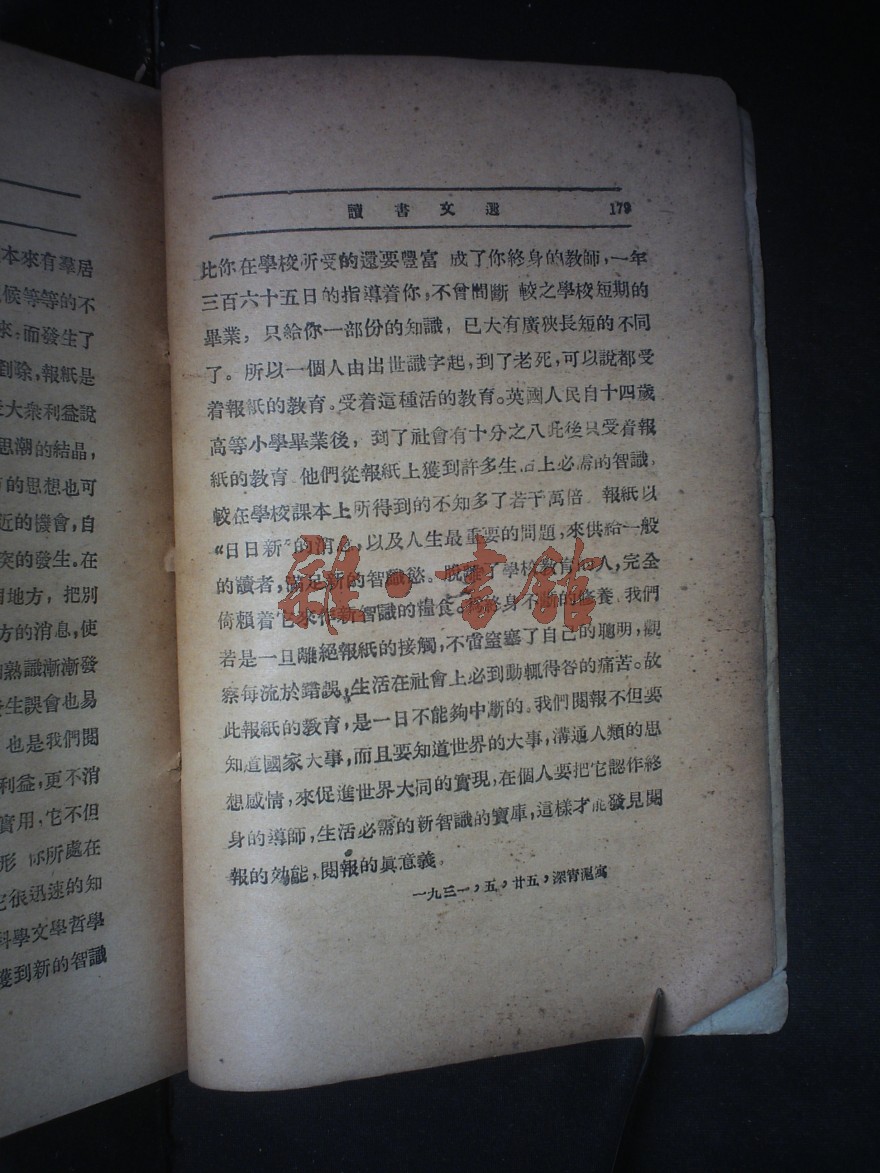 本來有羣居
候等等的不
來,而發生了
到除,報紙是
大衆利益說
思潮的結晶,
的思想也可
近的機會,自
突的發生。在
地方,把別
方的消息,使
熟識漸漸發
生誤會也易
也是我們閱
利益,更不消
實用,它不但
形 你所處在
它很迅速的知
科學文學哲學
獲到新的智識
讀書文選 179
比你在學校所受的還要豐富 成了你終身的教師,一年
三百六十五日的指導着你,不曾間斷 較之學校短期的
畢業,只給你一部份的知識,已大有廣狹長短的不同
了。所以一個人由出世識字起,到了老死,可以說都受
着報紙的教育。受着這種活的教育。英國人民自十四歲
高等小學畢業後,到了社會有十分之八此後只受着報
紙的教育 他們從報紙上獲到許多生活上必需的智識,
較在學校課本上所得到的不知多了若干萬倍 報紙以
“日日新”的消息,以及人生最重要的問題,來供給一般
的讀者,滿足新的智識慾。脫離了學校教育的人,完全
倚賴着它來作新智識的糧食。終身不斷的修養 我們
若是一旦離絕報紙的接觸,不啻窒塞了自己的聰明,觀
察每流於錯誤,生活在社會上必到動輒得咎的痛苦。故
此報紙的教育,是一日不能夠中斷的。我們閱報不但要
知道國家大事,而且要知道世界的大事,溝通人類的思
想感情,來促進世界大同的實現,在個人要把它認作終
身的導師,生活必需的新智識的寶庫,這樣才能發見閱
報的効能,閱報的眞意義。
一九三一,五,廿五,深宵滬寓
雜·書館